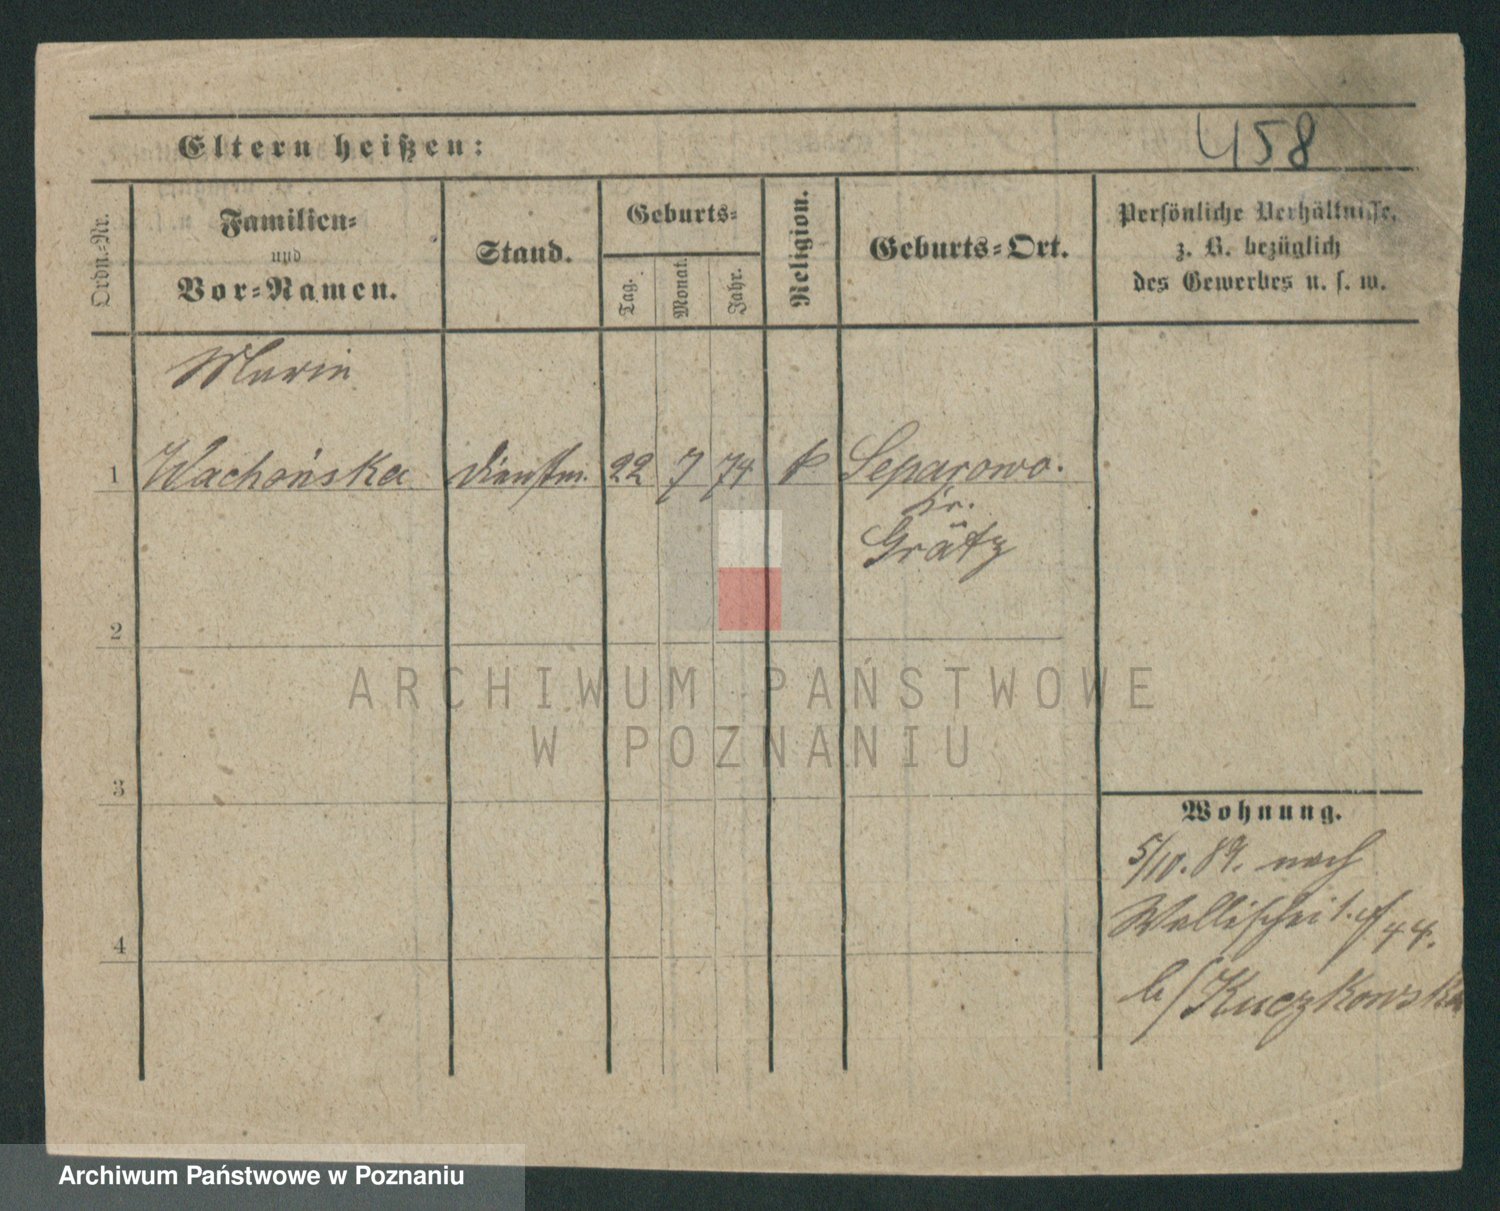 458
Eltern heißen:
Ordn.-Nr.
Familien-
und
Vor-Namen.
Stand.
Geburts-
Tag.
Monat.
Jahr.
Religion.
Geburts-Ort.
Persönliche Verhältnisse,
z. B. bezüglich
des Gewerbes u. s. w.
Marie
1 Wachońska Dienstm. 22 7 74 k Separowo.
Kr.
Grätz
2
3
4
Wohnung.
5/10. 89. nach
Wallischei 44.
b/ Kuczkowska
ARCHIWUM PAŃSTWOWE
W POZNANIU
Archiwum Państwowe w Poznaniu